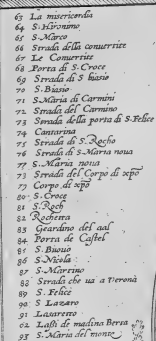 63 La misericordia
64 S. Hironimo
65 S. Marco
66 Strada della conuertite
67 Le Conuertite
68 Porta di S. Croce
69 Strada di S biasio
70 S. Biasio
71 S. Maria di Carmini
72 Strada del Carmino
73 Strada della porta di S. Felice
74 Cantarina
75 Strada di S. Rocho
76 Strada di S. Maria noua
77 S. Maria noua
78 Strada del Corpo di xp̄o
79 Corpo di xp̄o
80 S. Croce
81 S. Roch
82 Rochetta
83 Geardino del
84 Porta de Castel
85 S. Bouo
86 S Nicola
87 S. Martino
88 Strada che ua a Verona
89 S. Felice
90 S Lazaro
91 Lasaretto
92 Lassi de madina Beroa
93 S. Maria del monte